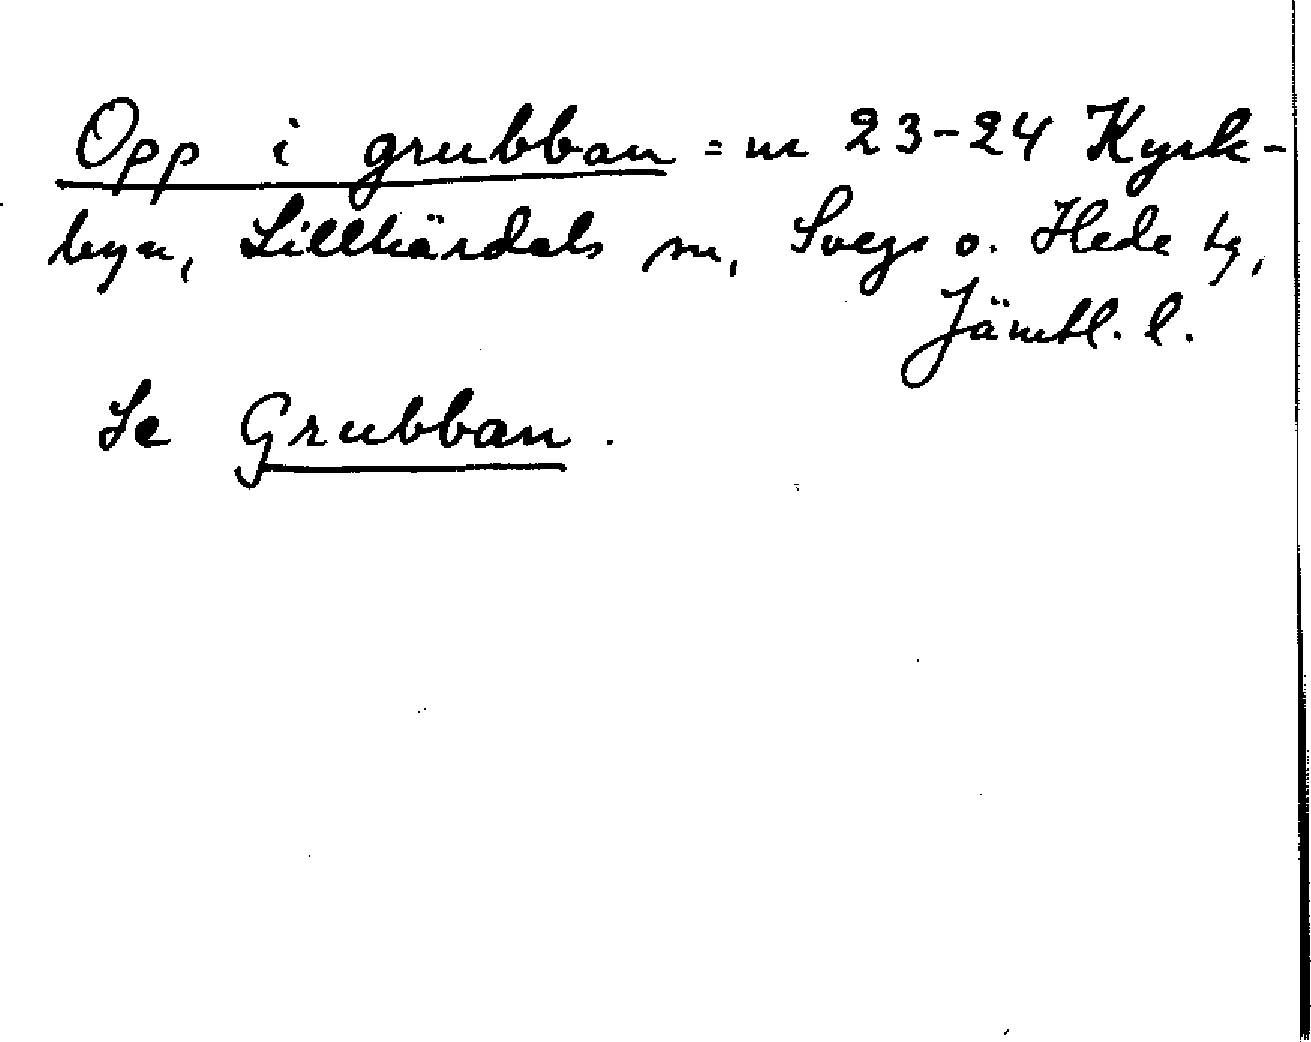 Opp i grubban = nr 23-24 Kyrk-
byn, Lillhärdals sn, Svegs o. Hede tg,
Jämtl. l.
Se Grubban.